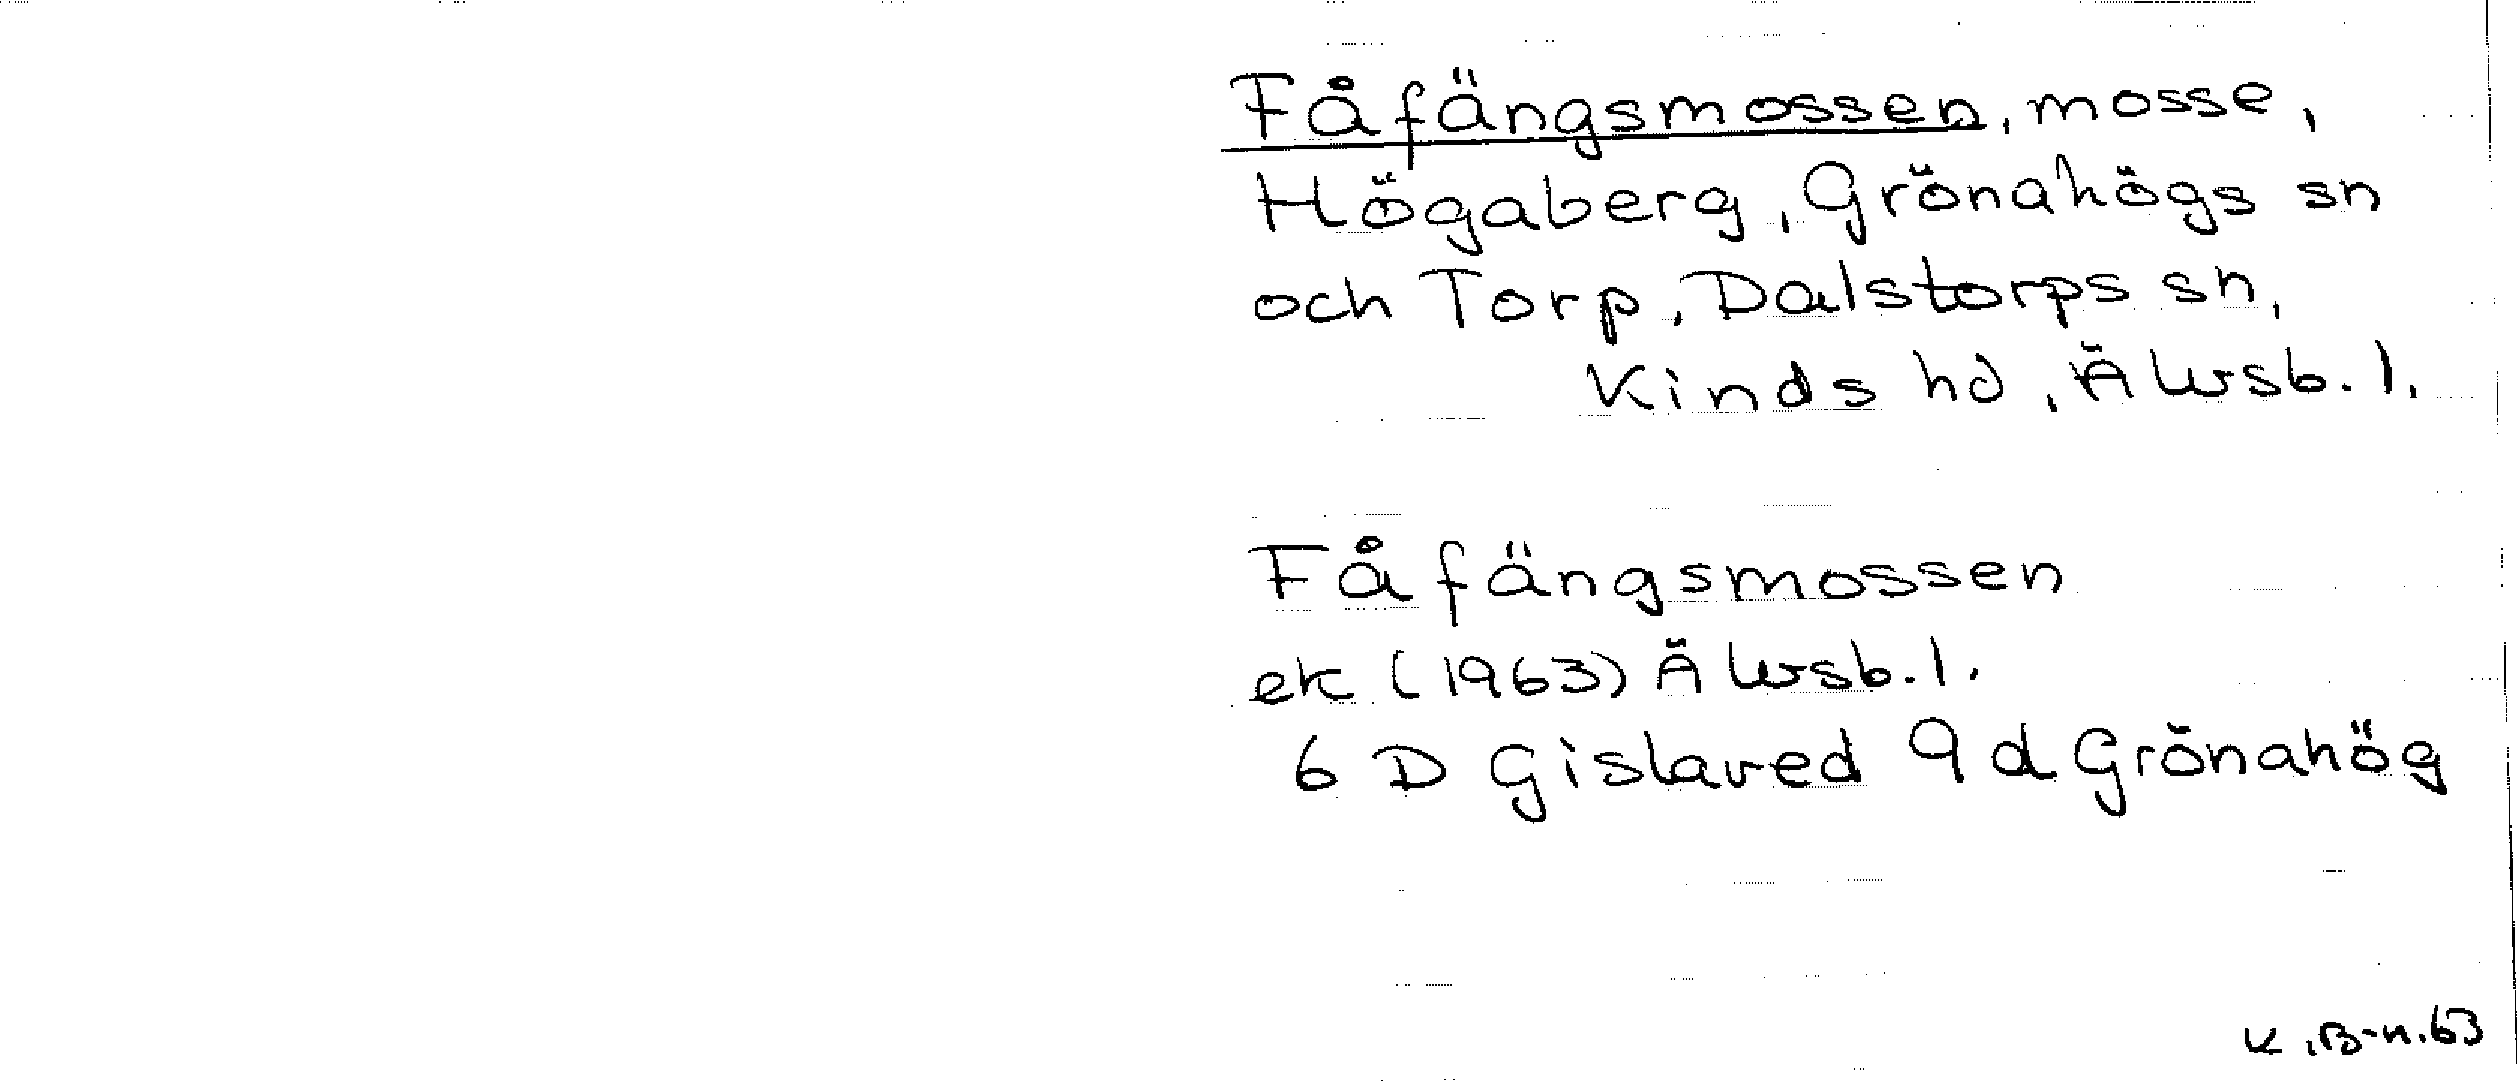 Fåfängsmossen, mosse,
Högaberg, Grönahögs sn
och Torp, Dalstorps sn,
Kinds hd, Älvsb. l.
Fåfängsmossen
ek (1963) Älvsb. l.
6 D Gislaved 9 d Grönahög
K.B-n.63